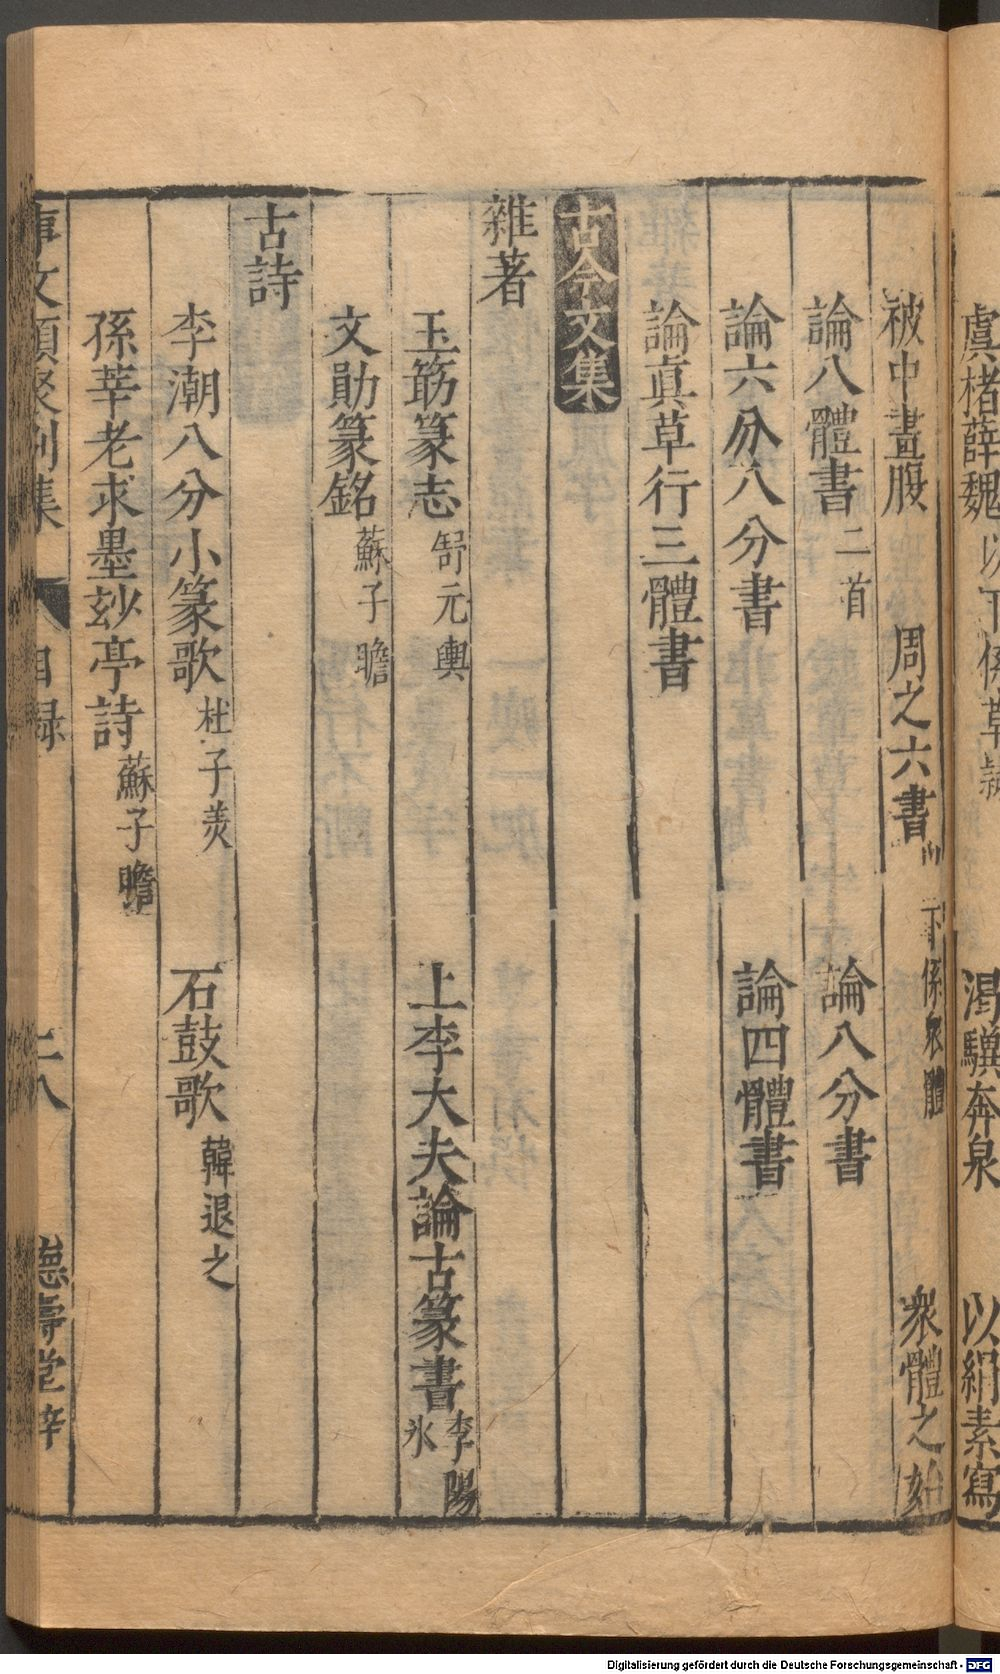 虞褚薛魏以下係草 渴驥奔泉 以絹素寫
被中畫腹 周之六書以下係衆體 衆體之始
論八體書二首 論八分書
論六分八分書 論四體書
論眞草行三體書
古今文集
雜著
玉筯篆志舒元輿 上李大夫論古篆書李陽氷
文勛篆銘蘇子瞻
古詩
李潮八分小篆歌杜子美 石鼓歌韓退之
孫莘老求墨妙亭詩蘇子瞻
事文類聚別集 目録 二八 德壽堂梓
Digitalisierung gefördert durch die Deutsche Forschungsgemeinschaft - DFG